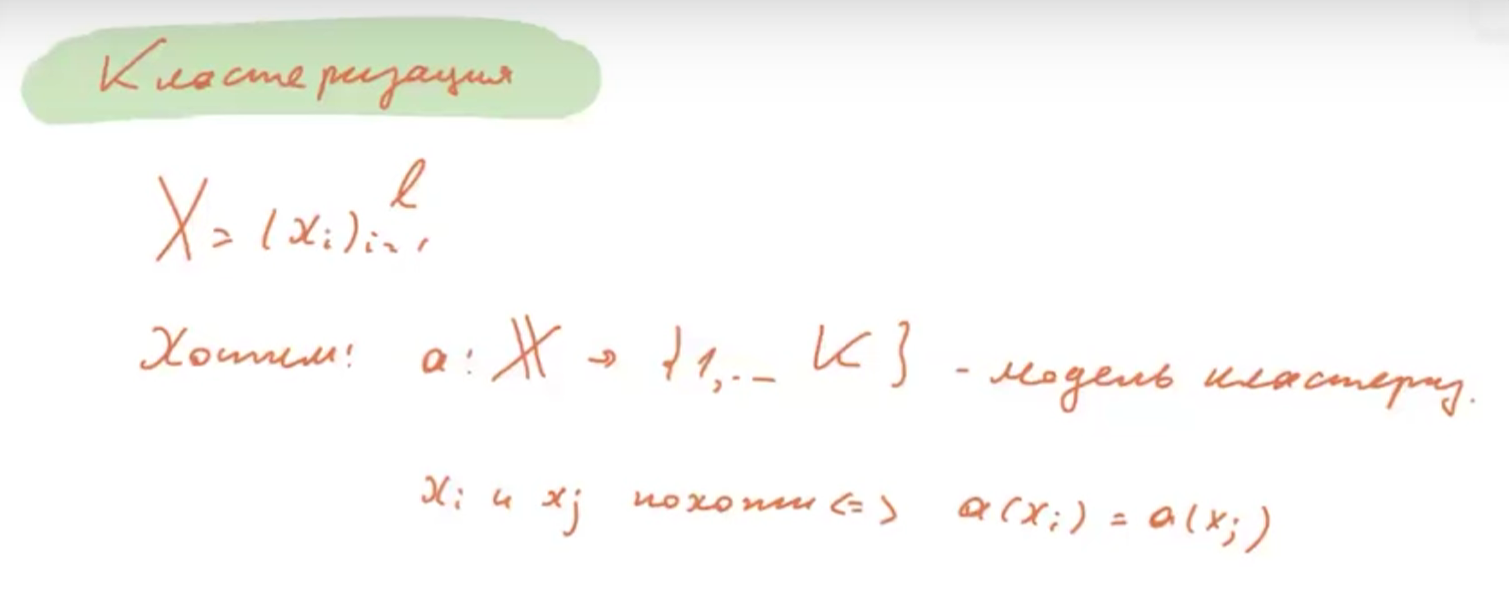 Кластеризация
X = (xᵢ)ᵢ₌₁ˡ
Хотим: a: 𝕏 → {1,.. K} - модель кластериз.
xᵢ и xⱼ похожи <=> a(xᵢ) = a(xⱼ)